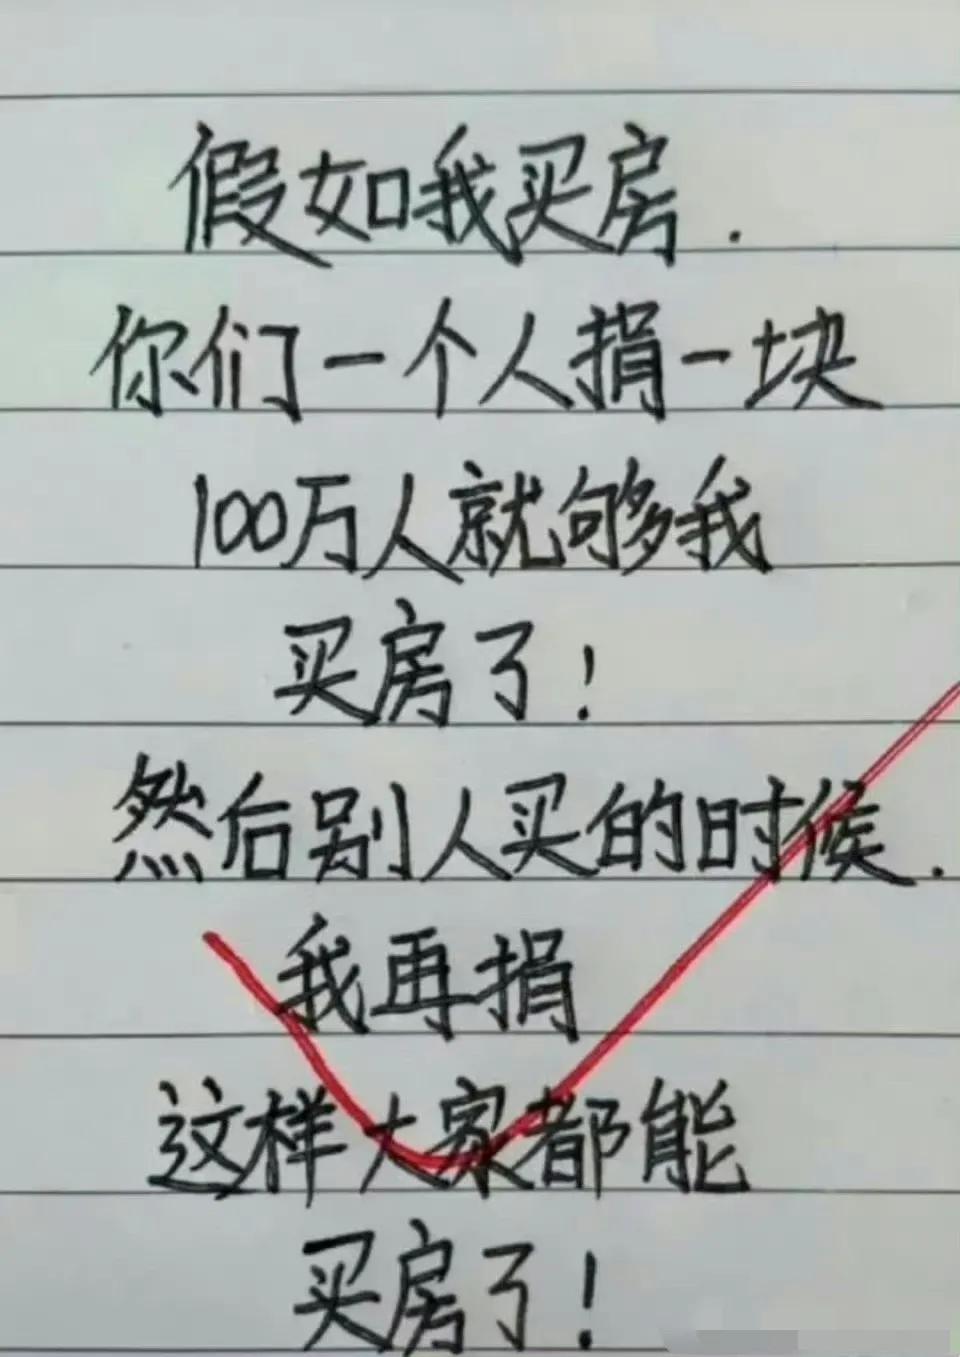 假如我买房.
你们一个人捐一块
100万人就够我
买房了!
然后别人买的时候.
我再捐
这样大家都能
买房了!